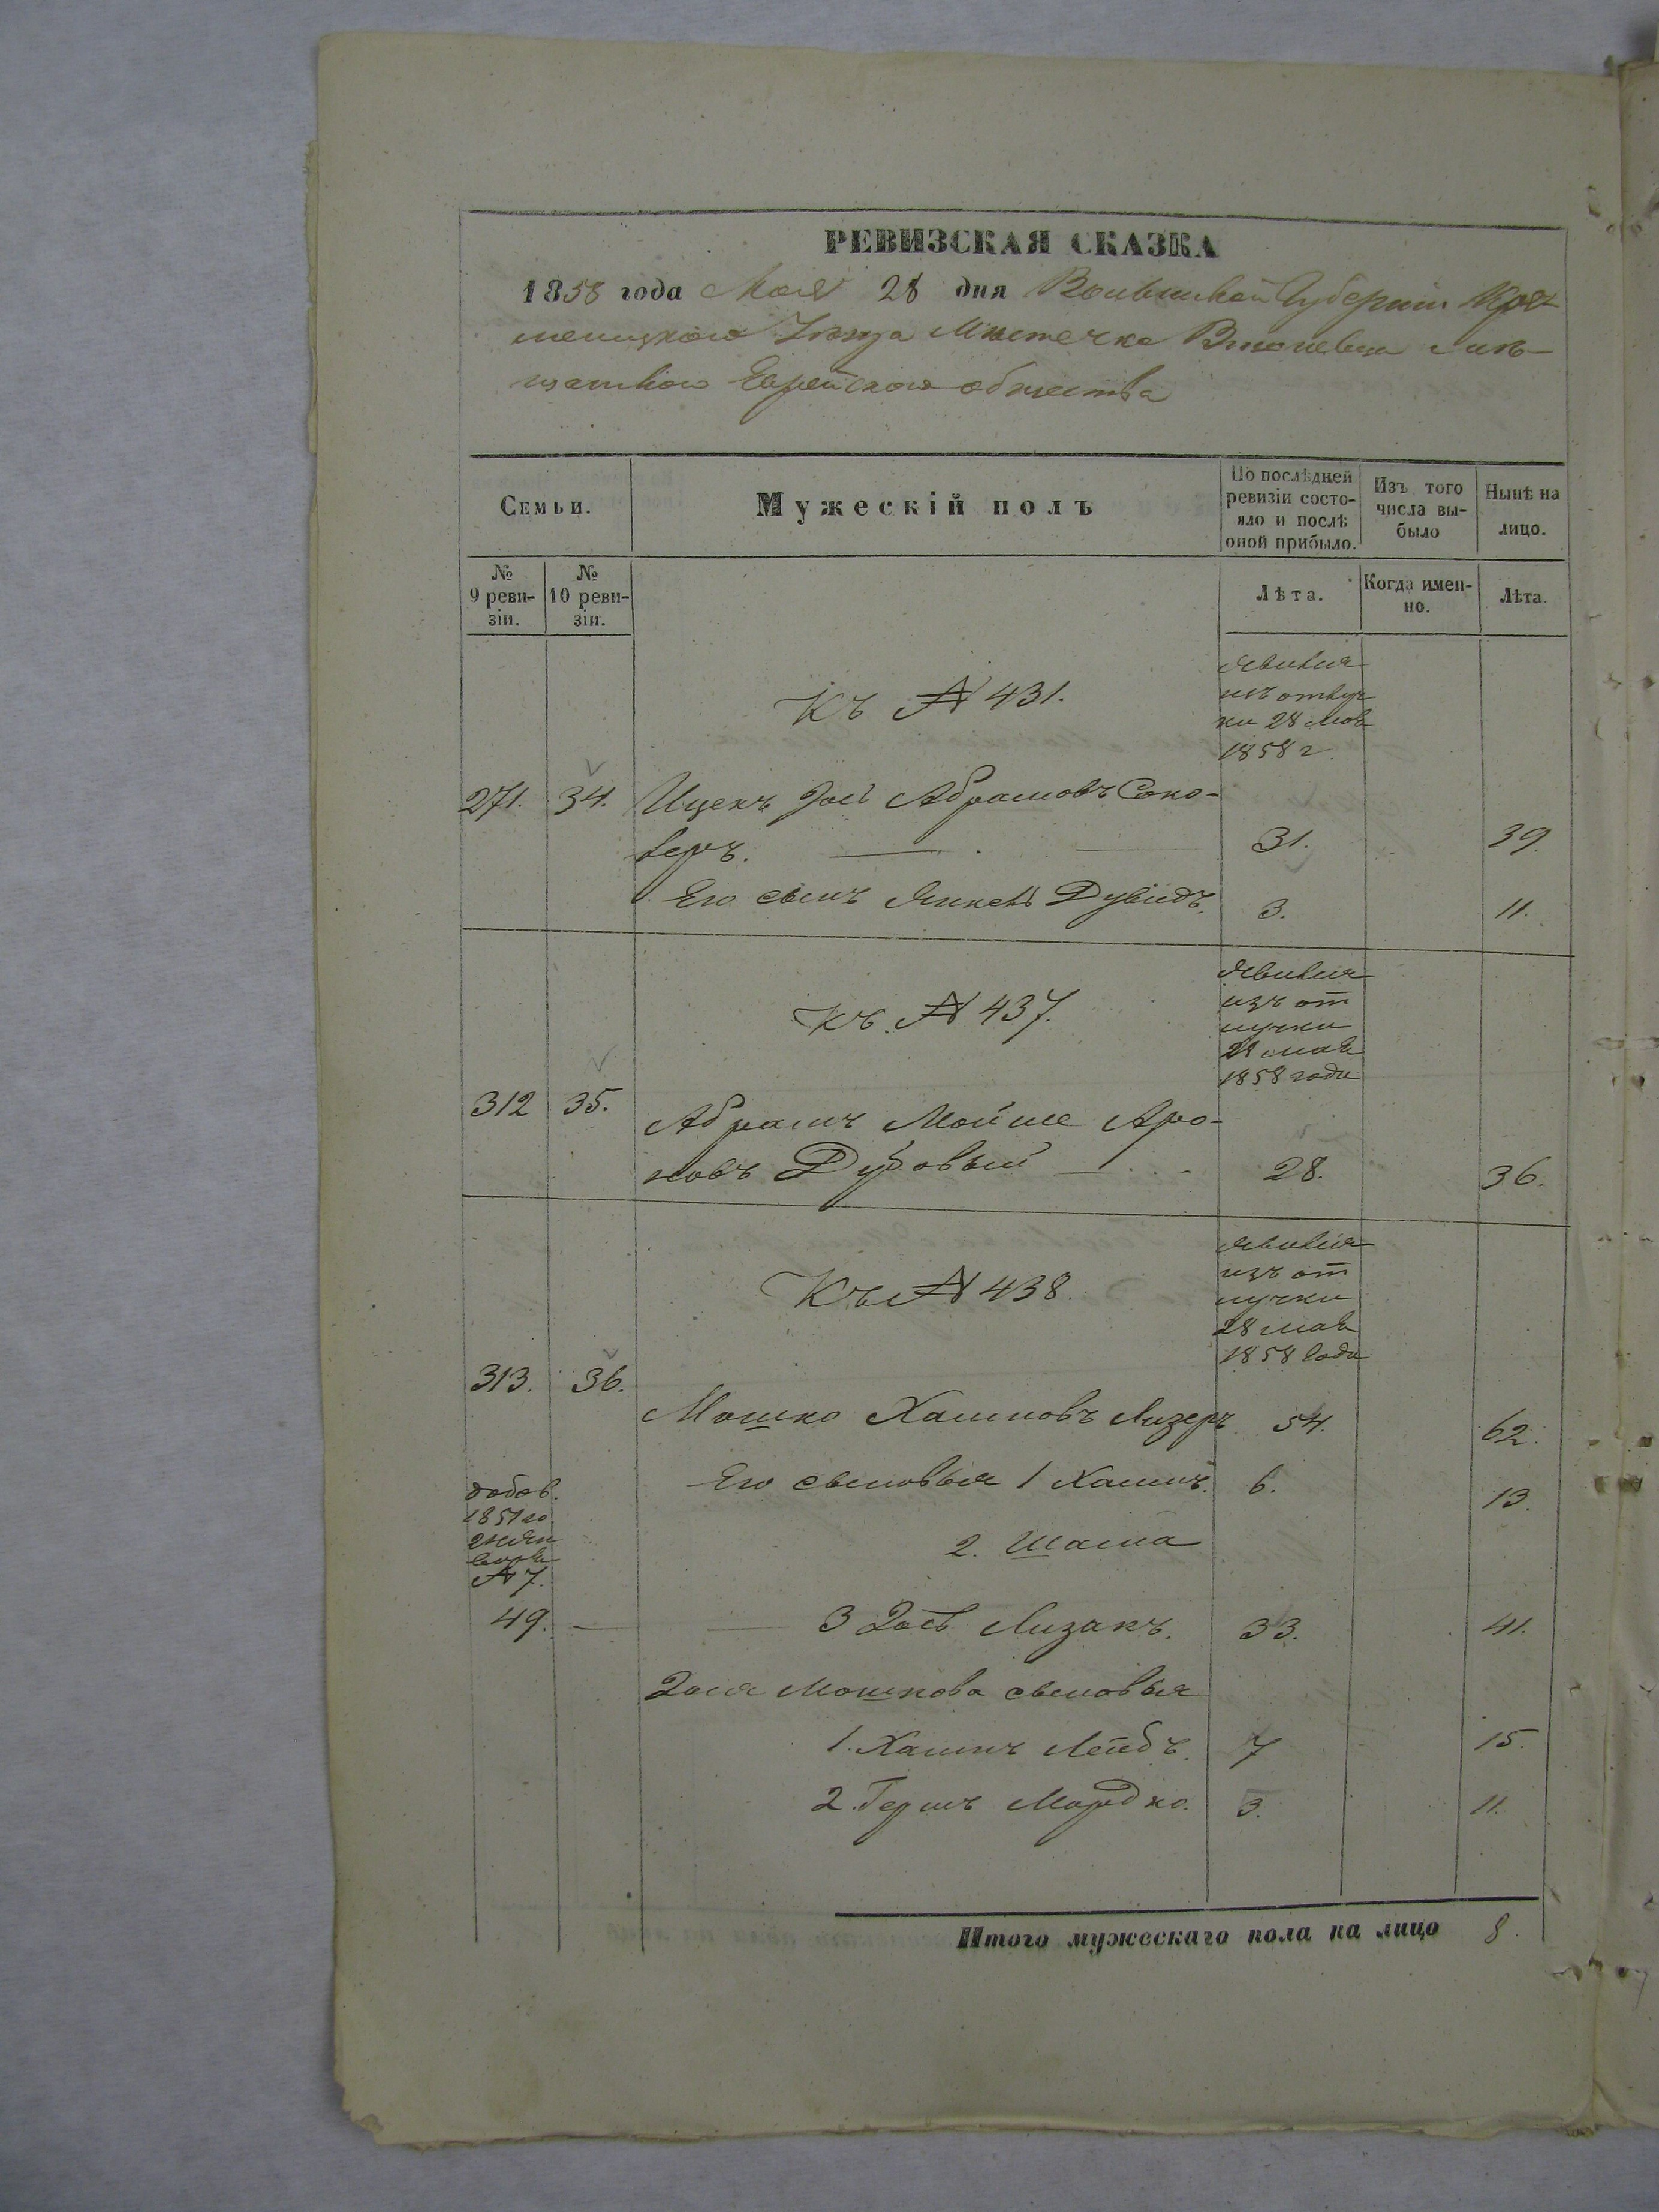 РЕВИЗСКАЯ СКАЗКА
1858 года Мая 28 дня Волынской Губернiи Кре-
менецкого Уезда Местечка Вышгевца Мѣ-
щанского Еврейского общества
Семьи.
Мужескiй полъ
По послѣдней ревизiи состо-яло и послѣ оной прибыло.
Изъ того числа вы-было
Нынѣ на лицо.
№ 9 реви-зiи.
№ 10 реви-зiи.
Лѣта.
Когда имен-но.
Лѣта.
Къ № 431.
явился
изъ отлуч
ки 28 мая
1858 г.
271. 34. Ицекъ Абрамовъ Соко-
леръ. 31. 39.
Его сынъ Янкель Дувидъ. 3. 11.
Къ № 437.
явился
изъ от
лучки
28 мая
1858 года
312 35. Абрамъ Мойше Аро-
новъ Дубовый 28. 36.
Къ № 438.
явился
изъ от
лучки
28 мая
1858 года
313. 36.
Мошко Хаимовъ Лизеръ 54. 62.
Его сыновья 1 Хаимъ. 6. 13.
добав.
1851 го
2. Шама
№ 7.
49. 3 Лизакъ. 33. 41.
Мошкова сыновья
1. Хаимъ Лейбъ. 7 15.
2. Гершъ Мордко. 3. 11.
Итого мужескаго пола на лицо 8.